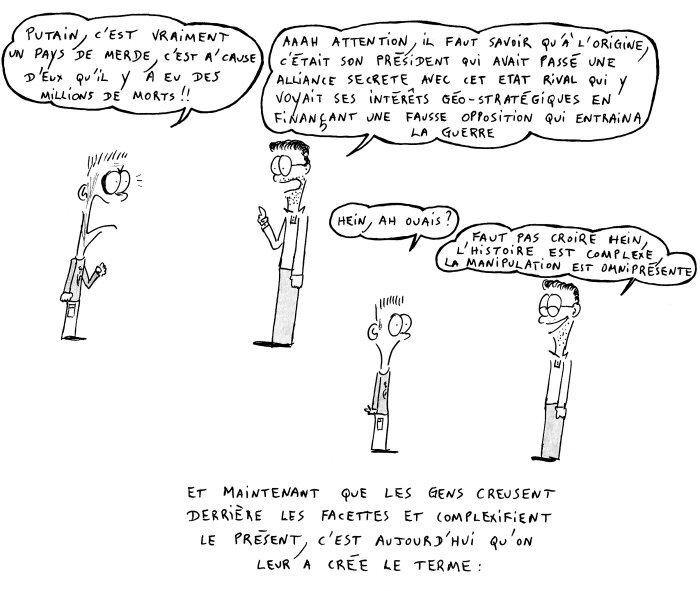 PUTAIN, C'EST VRAIMENT
UN PAYS DE MERDE, C'EST A' CAUSE
D'EUX QU'IL Y A EU DES
MILLIONS DE MORTS !!
AAAH ATTENTION, IL FAUT SAVOIR QU'À L'ORIGINE,
C'ÉTAIT SON PRÉSIDENT QUI AVAIT PASSÉ UNE
ALLIANCE SECRETE AVEC CET ETAT RIVAL QUI Y
VOYAIT SES INTÉRÊTS GÉO-STRATÉGIQUES EN
FINANÇANT UNE FAUSSE OPPOSITION QUI ENTRAINA
LA GUERRE
HEIN, AH OUAIS ?
FAUT PAS CROIRE HEIN,
L'HISTOIRE EST COMPLEXE,
LA MANIPULATION EST OMNIPRÉSENTE
ET MAINTENANT QUE LES GENS CREUSENT
DERRIÈRE LES FACETTES ET COMPLEXIFIENT
LE PRÉSENT, C'EST AUJOURD'HUI QU'ON
LEUR A CRÉE LE TERME :